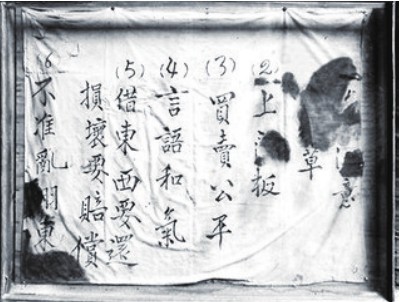 意
草
(2)上板
(3)買賣公平
(4)言語和氣
(5)借東西要還
損壞要賠償
(6)不准亂東